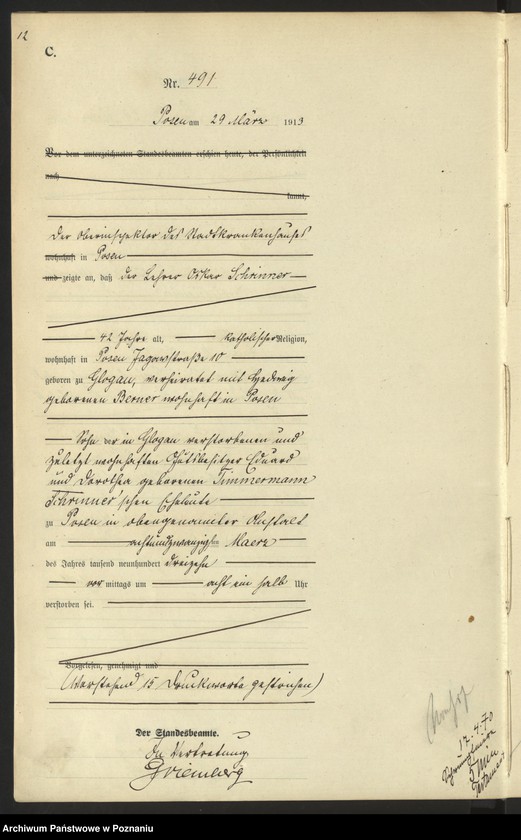 12
C.
Nr. 491
Posen am 29 März 1913
Vor dem unterzeichneten Standesbeamten erschien heute, der Persönlichkeit
nach
kannt,
Der Oberinspektor des Stadtkrankenhauses
wohnhaft in Posen
und zeigte an, daß der Lehrer Oskar Schrinner
42 Jahre alt, katholischer Religion,
wohnhaft in Posen Jagowstraße 10
geboren zu Glogau, verheiratet mit Hedwig
geborenen Berner wohnhaft in Posen
Sohn der in Glogau verstorbenen und
zuletzt wohnhaften Gutsbesitzer Eduard
und Dorothea geborenen Timmermann
Schrinner'schen Eheleute
zu Posen in obengenannter Anstalt
am achtundzwanzigsten Maerz
des Jahres tausend neunhundert dreizehn
vor mittags um acht ein halb Uhr
verstorben sei.
Vorgelesen, genehmigt und
(Vorstehend 15 Druckworte gestrichen)
Der Standesbeamte.
In Vertretung
17-4-70
Archiwum Państwowe w Poznaniu